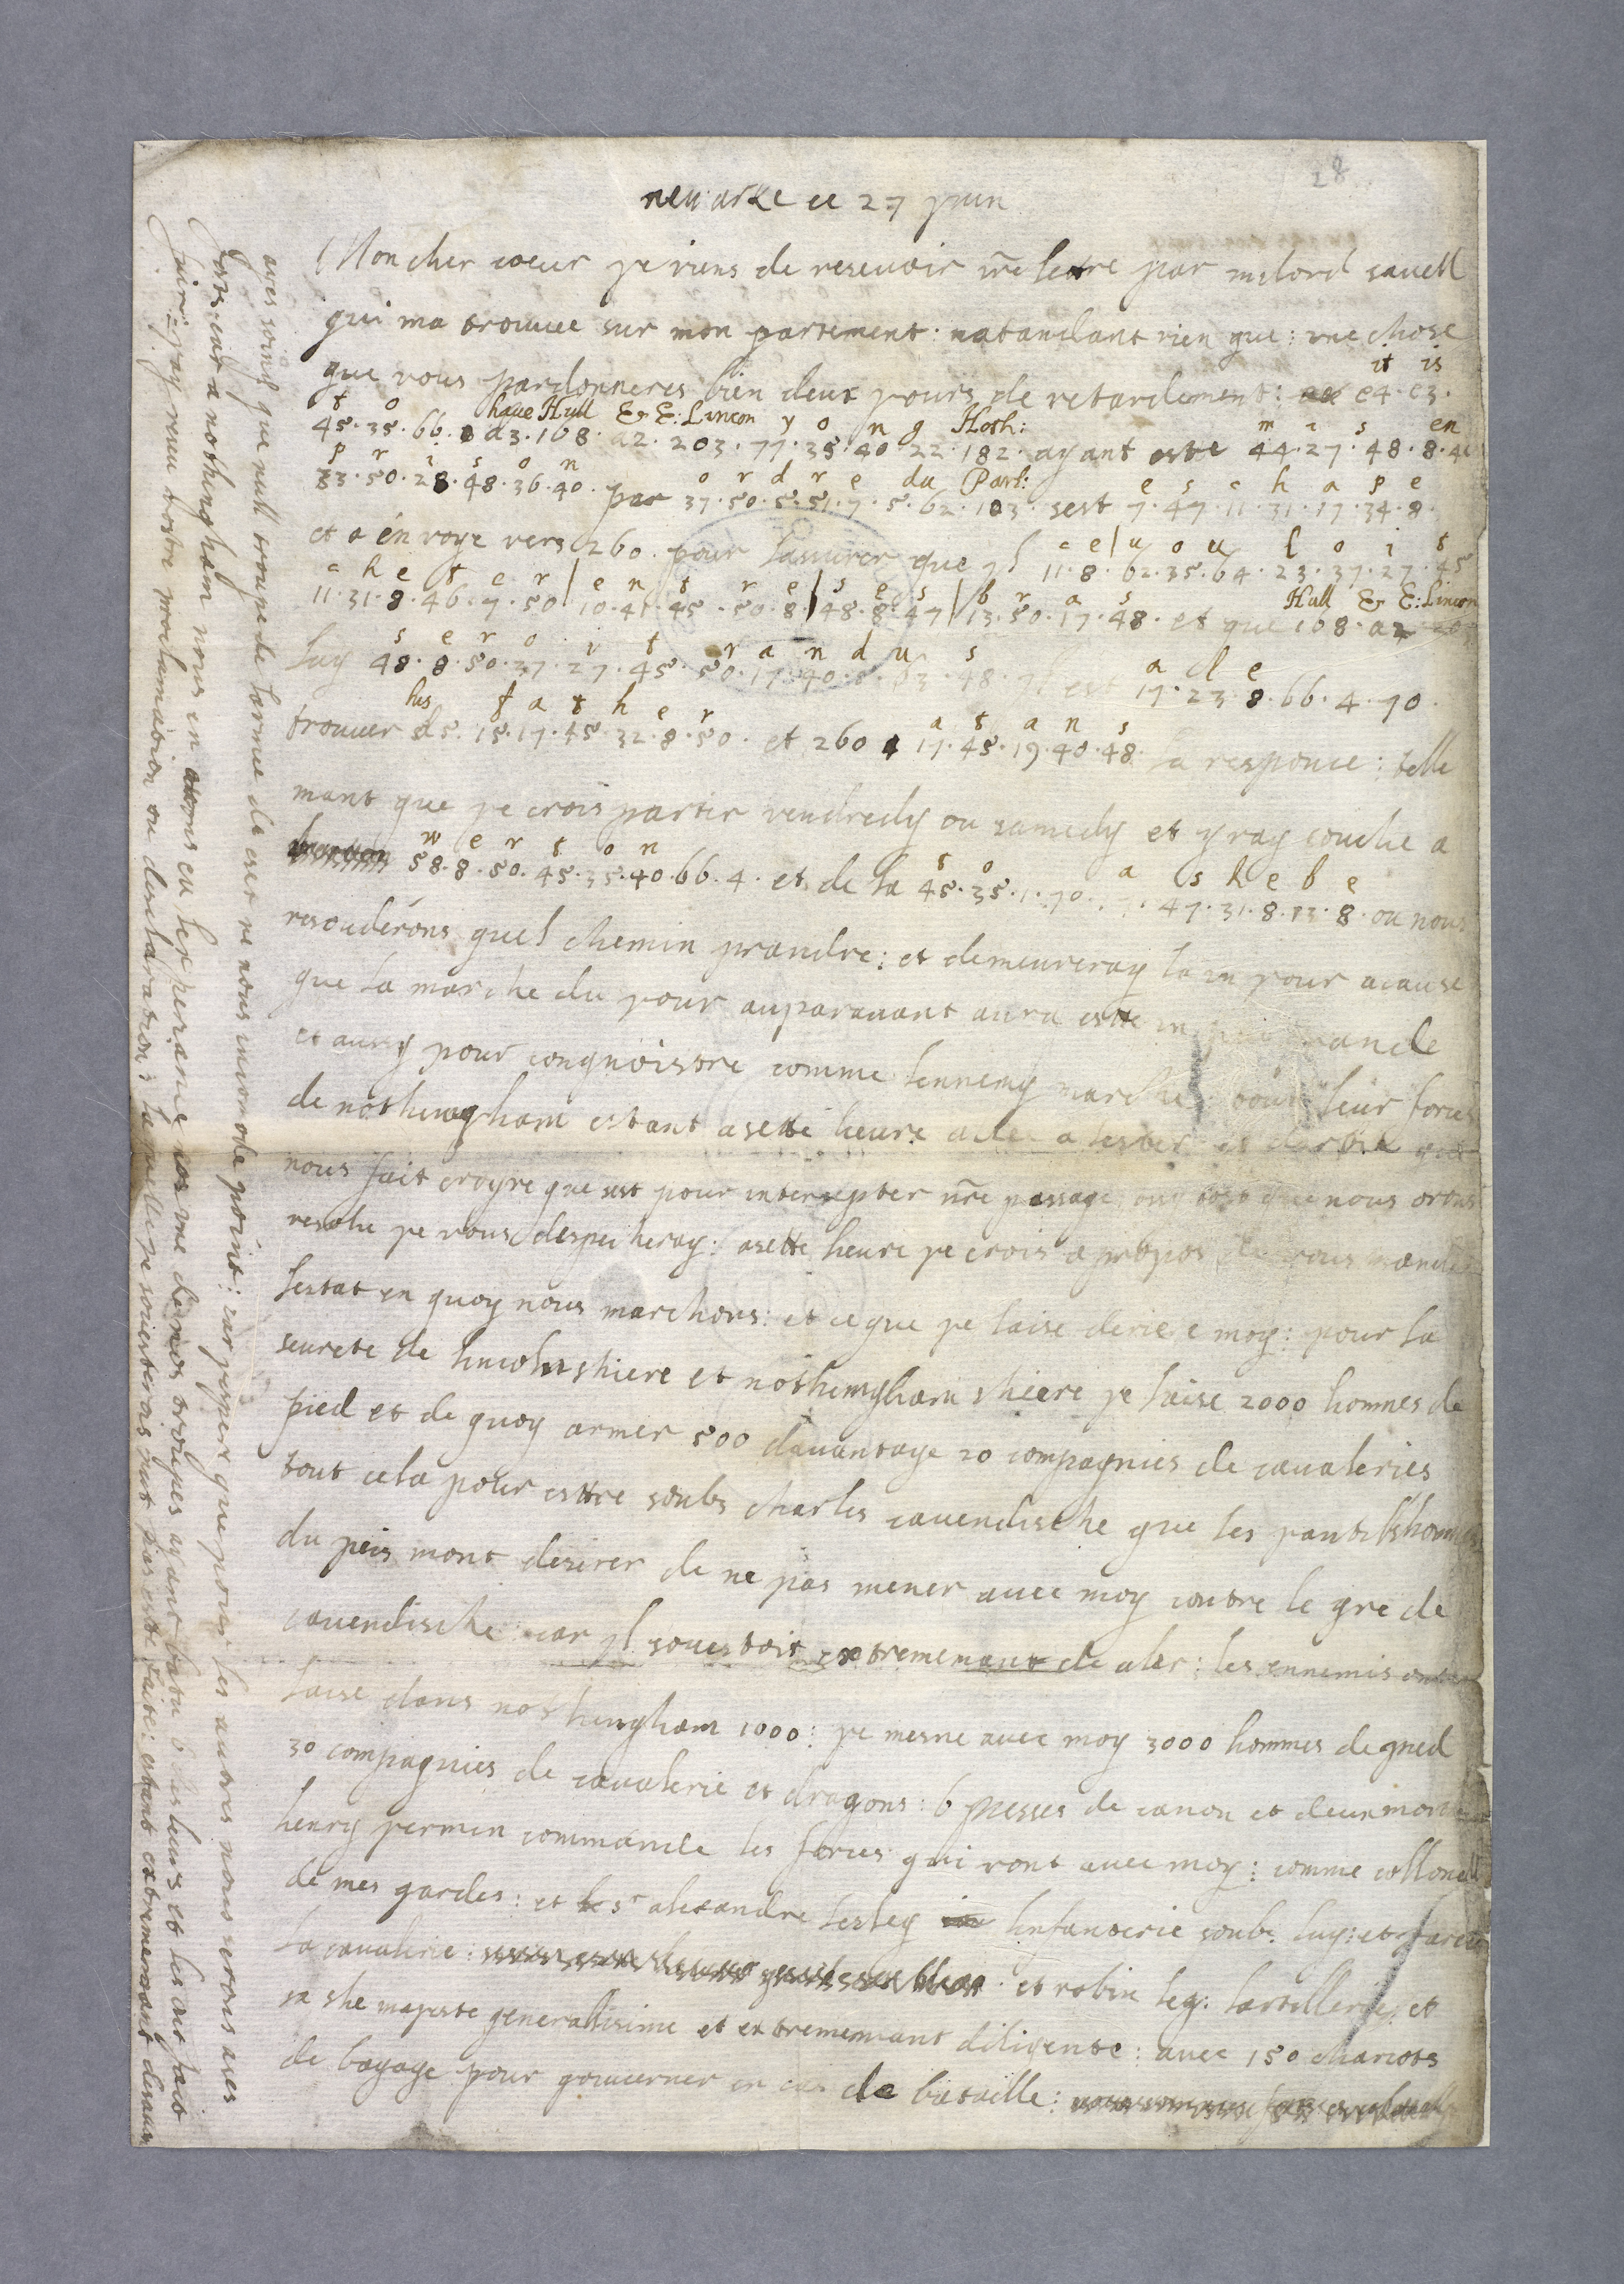 28
newarke ce 27 juin
Mon cher coeur je viens de resevoir vre lettre par milord savell
qui ma trouvee sur mon partement: natandant rien que: une chose
que vous pardonneres bien deux jours de retardement: e4. e3.
it is
t o have Hull & E: Lincon y o n g Hoth: m i s en
45.35.66. d3.108. a2. 203.77.35.40.22.182. ayant este 44.27.48.8.4
p r i s o n o r d r e du Parl: e s c h a p e
33.50.28.48.36.40. par 37.50.5.51.7.5.62.103. sest 7.47.11.31.17.34.8.
et a envoye vers 260. pour lassurer que yl
c e u o u l o i t
11.8.62.35.64.23.37.27.45
c h e t e r e n t r e s e s b r a s Hull & E: Lincon
11.31.8.46.7.50 10.41.45.50.8. 48.8.47 13.50.17.48. et que 108. a2
s e r o i t r a n d u s a l e
luy 48.8.50.37.27.45. 50.17.40. 63.48. yl est 17.23.8.66.4.70.
his f a t h e r a t a n s
trouver d5. 15.17.45.32.8.50. et 260 17.45.19.40.48. la responce: telle
mant que je crois partir vendredy ou samedy et yray couche a
w e r t o n t o a s h e b e
58.8.50.45.35.40.66.4. et de la 45.35.1.70. 47.31.8.13.8. ou nous
resouderons quel chemin prandre: et demeureray la un jour a cause
que la marche du jour auparavant aura este un peu grande
et aussy pour congnoistre comme lennemy marche tout leur forces
de nothingham estant asette heure a lester et darbie qui
nous fait croyre que sest pour intersepter nre passage ausy tost que nous orons
resolu je vous despecheray: asette heure je crois a propos de vous mande
lestat en quoy nous marchons: et ce que je laise deriere moy: pour la
seurete de lincolnshiere et nothingham shiere je laise 2000 hommes de
pied et de quoy armer 500 davantage 20 compagnies de cavaleries
tout cela pour estre soubs charles cavendische que les jantilshommes
du peis mont desirer de ne pas mener avec moy contre le gre de
cavendische: car yl souestoit extrememant de aler: les ennemis ont
laise dans nothingham 1000: je mesne avec moy 3000 hommes de pied
30 compagnies de cavalerie et dragons: 6 piesses de canon et deux mortiers
henry jermin commande les forces qui vont avec moy: comme collonell
de mes gardes: et sr alexandre lesley linfanterie soubs luy: et
la cavalerie: et robin leg: lartillerie: et
sa she majeste generalisime et extrememant diligente: avec 150 chariots
de bagage pour gouverner en cas de bataille:
ayes soing que null troupe de larmee de esex ne nous incomode point: car jespere que pour les autres nous serons ases
forts: car a nothingham nous en avons eu lexperiance une de nos troupes ayant batu 6 des leurs et les ont fait
fuir: jay receu vostre proclamation ou declaration: laquelle je souesterois neut pas este faite: estant extrememant desavan